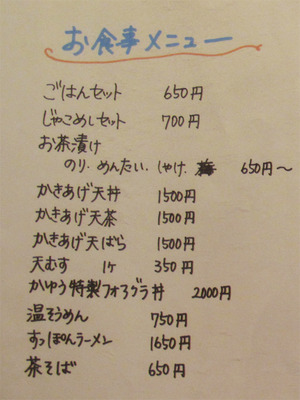 お食事メニュー
ごはんセット 650円
じゃこめしセット 700円
お茶漬け
のり・めんたい・しゃけ・梅 650円〜
かきあげ天丼 1500円
かきあげ天茶 1500円
かきあげ天ばら 1500円
天むす 1ヶ 350円
かゆう特製フォアグラ丼 2000円
温そうめん 750円
すっぽんラーメン 1650円
茶そば 650円